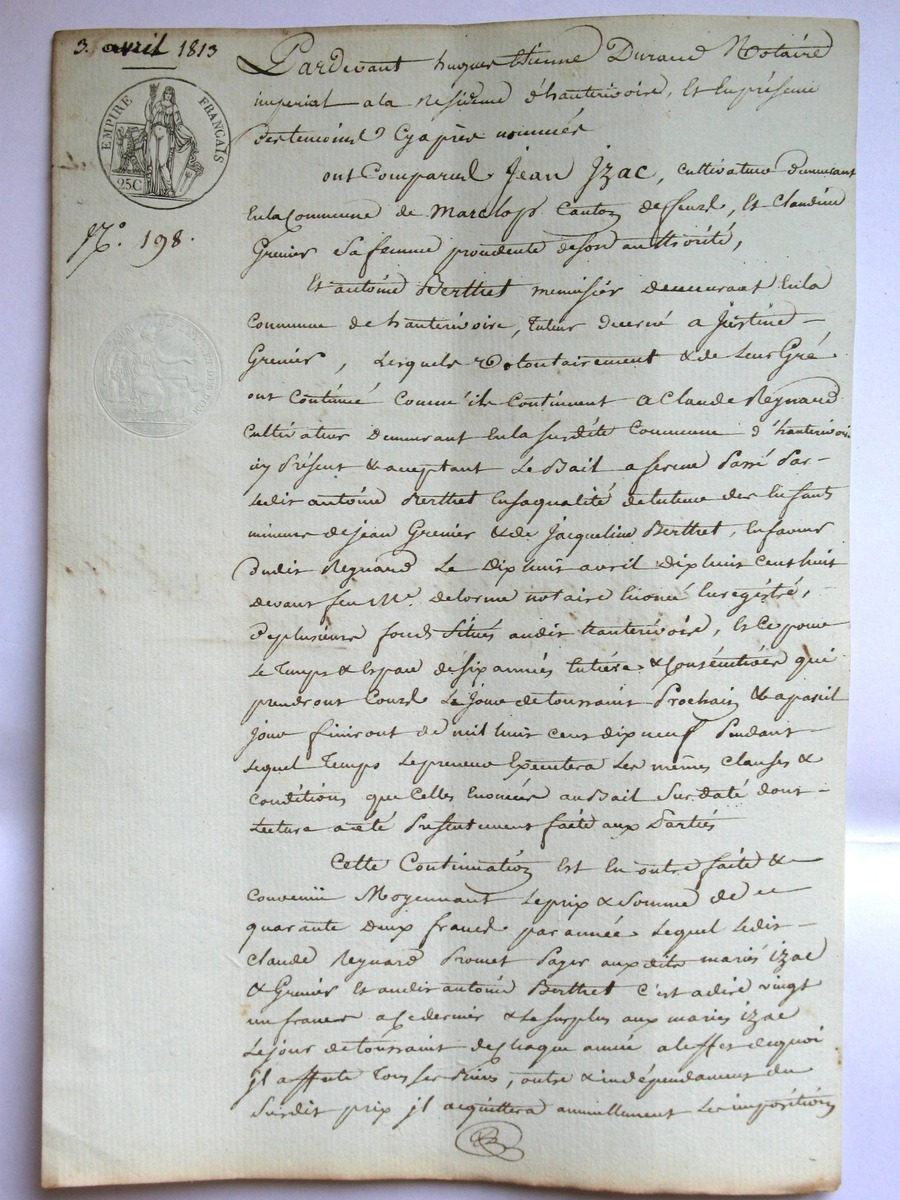 3. avril 1813
EMPIRE FRANÇAIS
25C
N.° 198.
Pardevant hugues Etienne Durand Notaire
imperial a la Residence d'hauterivoire, Et En présence
Des temoins Cy après nommés
ont Comparus Jean Izac, cultivateur demeurant
En la Commune de Marclop Canton de feurs, Et Claudine
Grenier Sa femme procedente de son authorité,
Et antoine Berthet menuisier demeurant En la
Commune de hauterivoire, tuteur decerné a Justine
Grenier, Lesquels volontairement & de Leur Gré
ont Continué Comme ils Continuent a Claude Reynard
Cultivateur Demeurant En la Susdite Commune d'hauterivoire
icy Présent & acceptant Le Bail a ferme Passé Par
Ledit antoine Berthet En sa qualité de tuteur des Enfants
mineurs de jean Grenier & de Jacqueline Berthet, En faveur
dudit Reynard Le Dix huit avril Dix huit Cent huit
devant feu Me. delorme notaire Enoncé Enregistré,
de plusieurs fonds Situés audit hauterivoire, Et Ce pour
Le Temps & Espace de Six années Entière & Consécutives qui
prendront Cours Le Jour de toussaint Prochain & a pareil
jour finiront de mil huit cent dix neuf Pendant
Lequel Temps Le preneur Executera Les mêmes Clauses &
Conditions que Celles Enoncées au Bail Sus daté dont
Lecture a été Présentement faite aux Parties
Cette Continuation Est En outre faite &
Convenüe Moyennant Le prix & Somme de
quarante Deux francs par année Lequel Ledit
Claude Reynard Promet Payer auxdits mariés izac
& Grenier Et audit antoine Berthet C'est a dire vingt
un francs a Ce dernier & Le Surplus aux mariés izac
Le jour de toussaint de Chaque année a L'effet de quoi
jl affecte Tous Ses Biens, outre & indépendament du
Susdit prix jl acquittera annuellement Les impositions